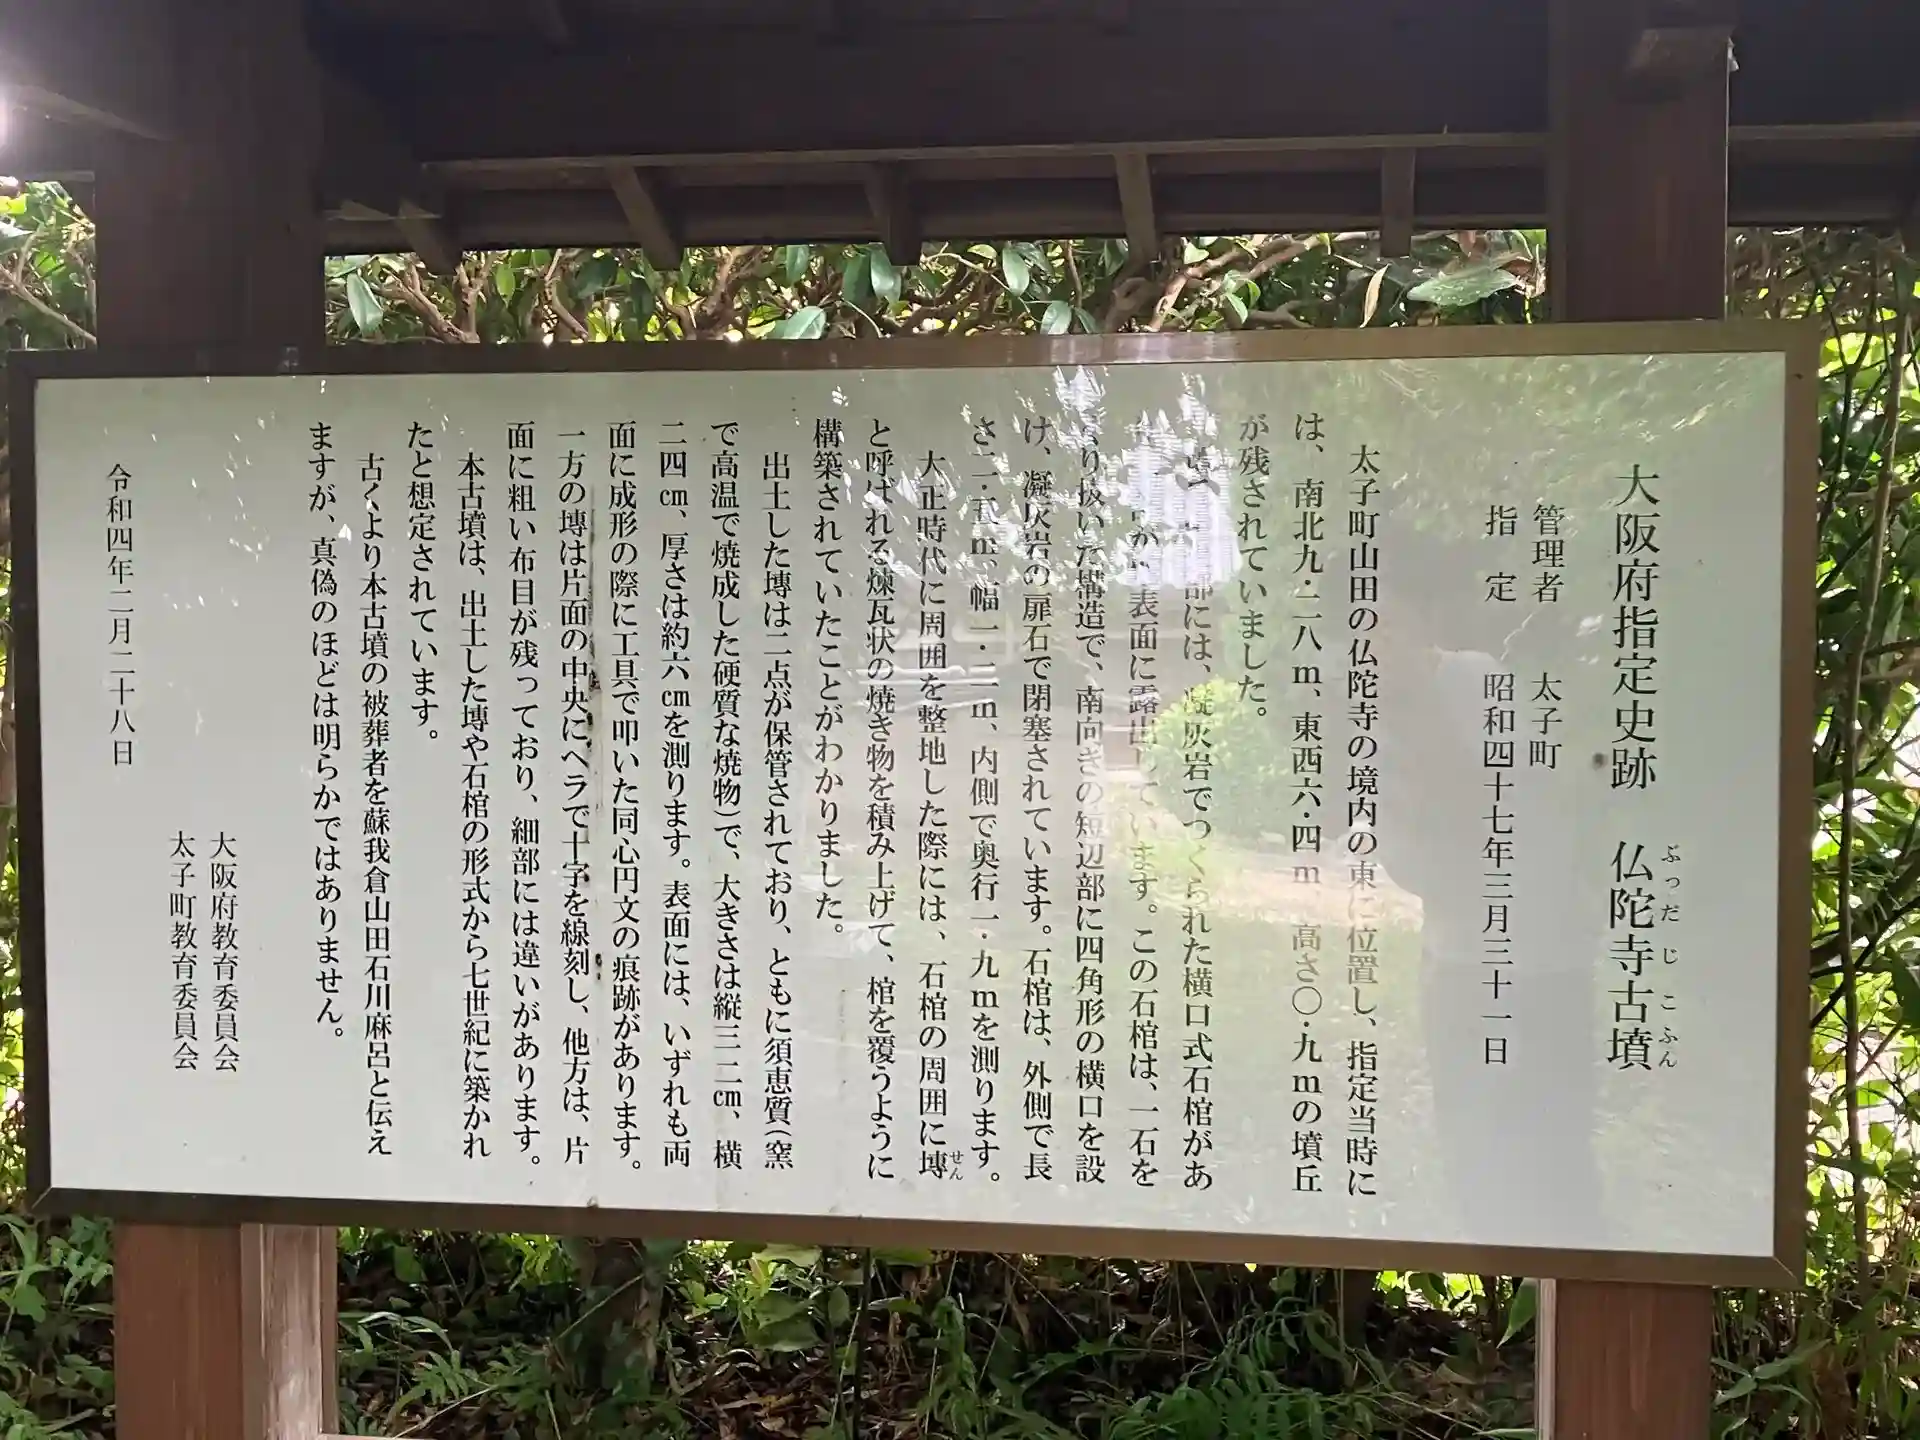 大阪府指定史跡　仏陀寺古墳
ぶっだじこふん
管理者　太子町
指　定　昭和四十七年三月三十一日
太子町山田の仏陀寺の境内の東に位置し、指定当時に
は、南北九・二八ｍ、東西六・四ｍ、高さ〇・九ｍの墳丘
が残されていました。
部には、凝灰岩でつくられた横口式石棺があ
が表面に露出しています。この石棺は、一石を
り抜いた構造で、南向きの短辺部に四角形の横口を設
け、凝灰岩の扉石で閉塞されています。石棺は、外側で長
さ二・五ｍ、幅一・二ｍ、内側で奥行一・九ｍを測ります。
大正時代に周囲を整地した際には、石棺の周囲に塼
せん
と呼ばれる煉瓦状の焼き物を積み上げて、棺を覆うように
構築されていたことがわかりました。
出土した塼は二点が保管されており、ともに須恵質（窯
で高温で焼成した硬質な焼物）で、大きさは縦三二㎝、横
二四㎝、厚さは約六㎝を測ります。表面には、いずれも両
面に成形の際に工具で叩いた同心円文の痕跡があります。
一方の塼は片面の中央にヘラで十字を線刻し、他方は、片
面に粗い布目が残っており、細部には違いがあります。
本古墳は、出土した塼や石棺の形式から七世紀に築かれ
たと想定されています。
古くより本古墳の被葬者を蘇我倉山田石川麻呂と伝え
ますが、真偽のほどは明らかではありません。
大阪府教育委員会
太子町教育委員会
令和四年二月二十八日